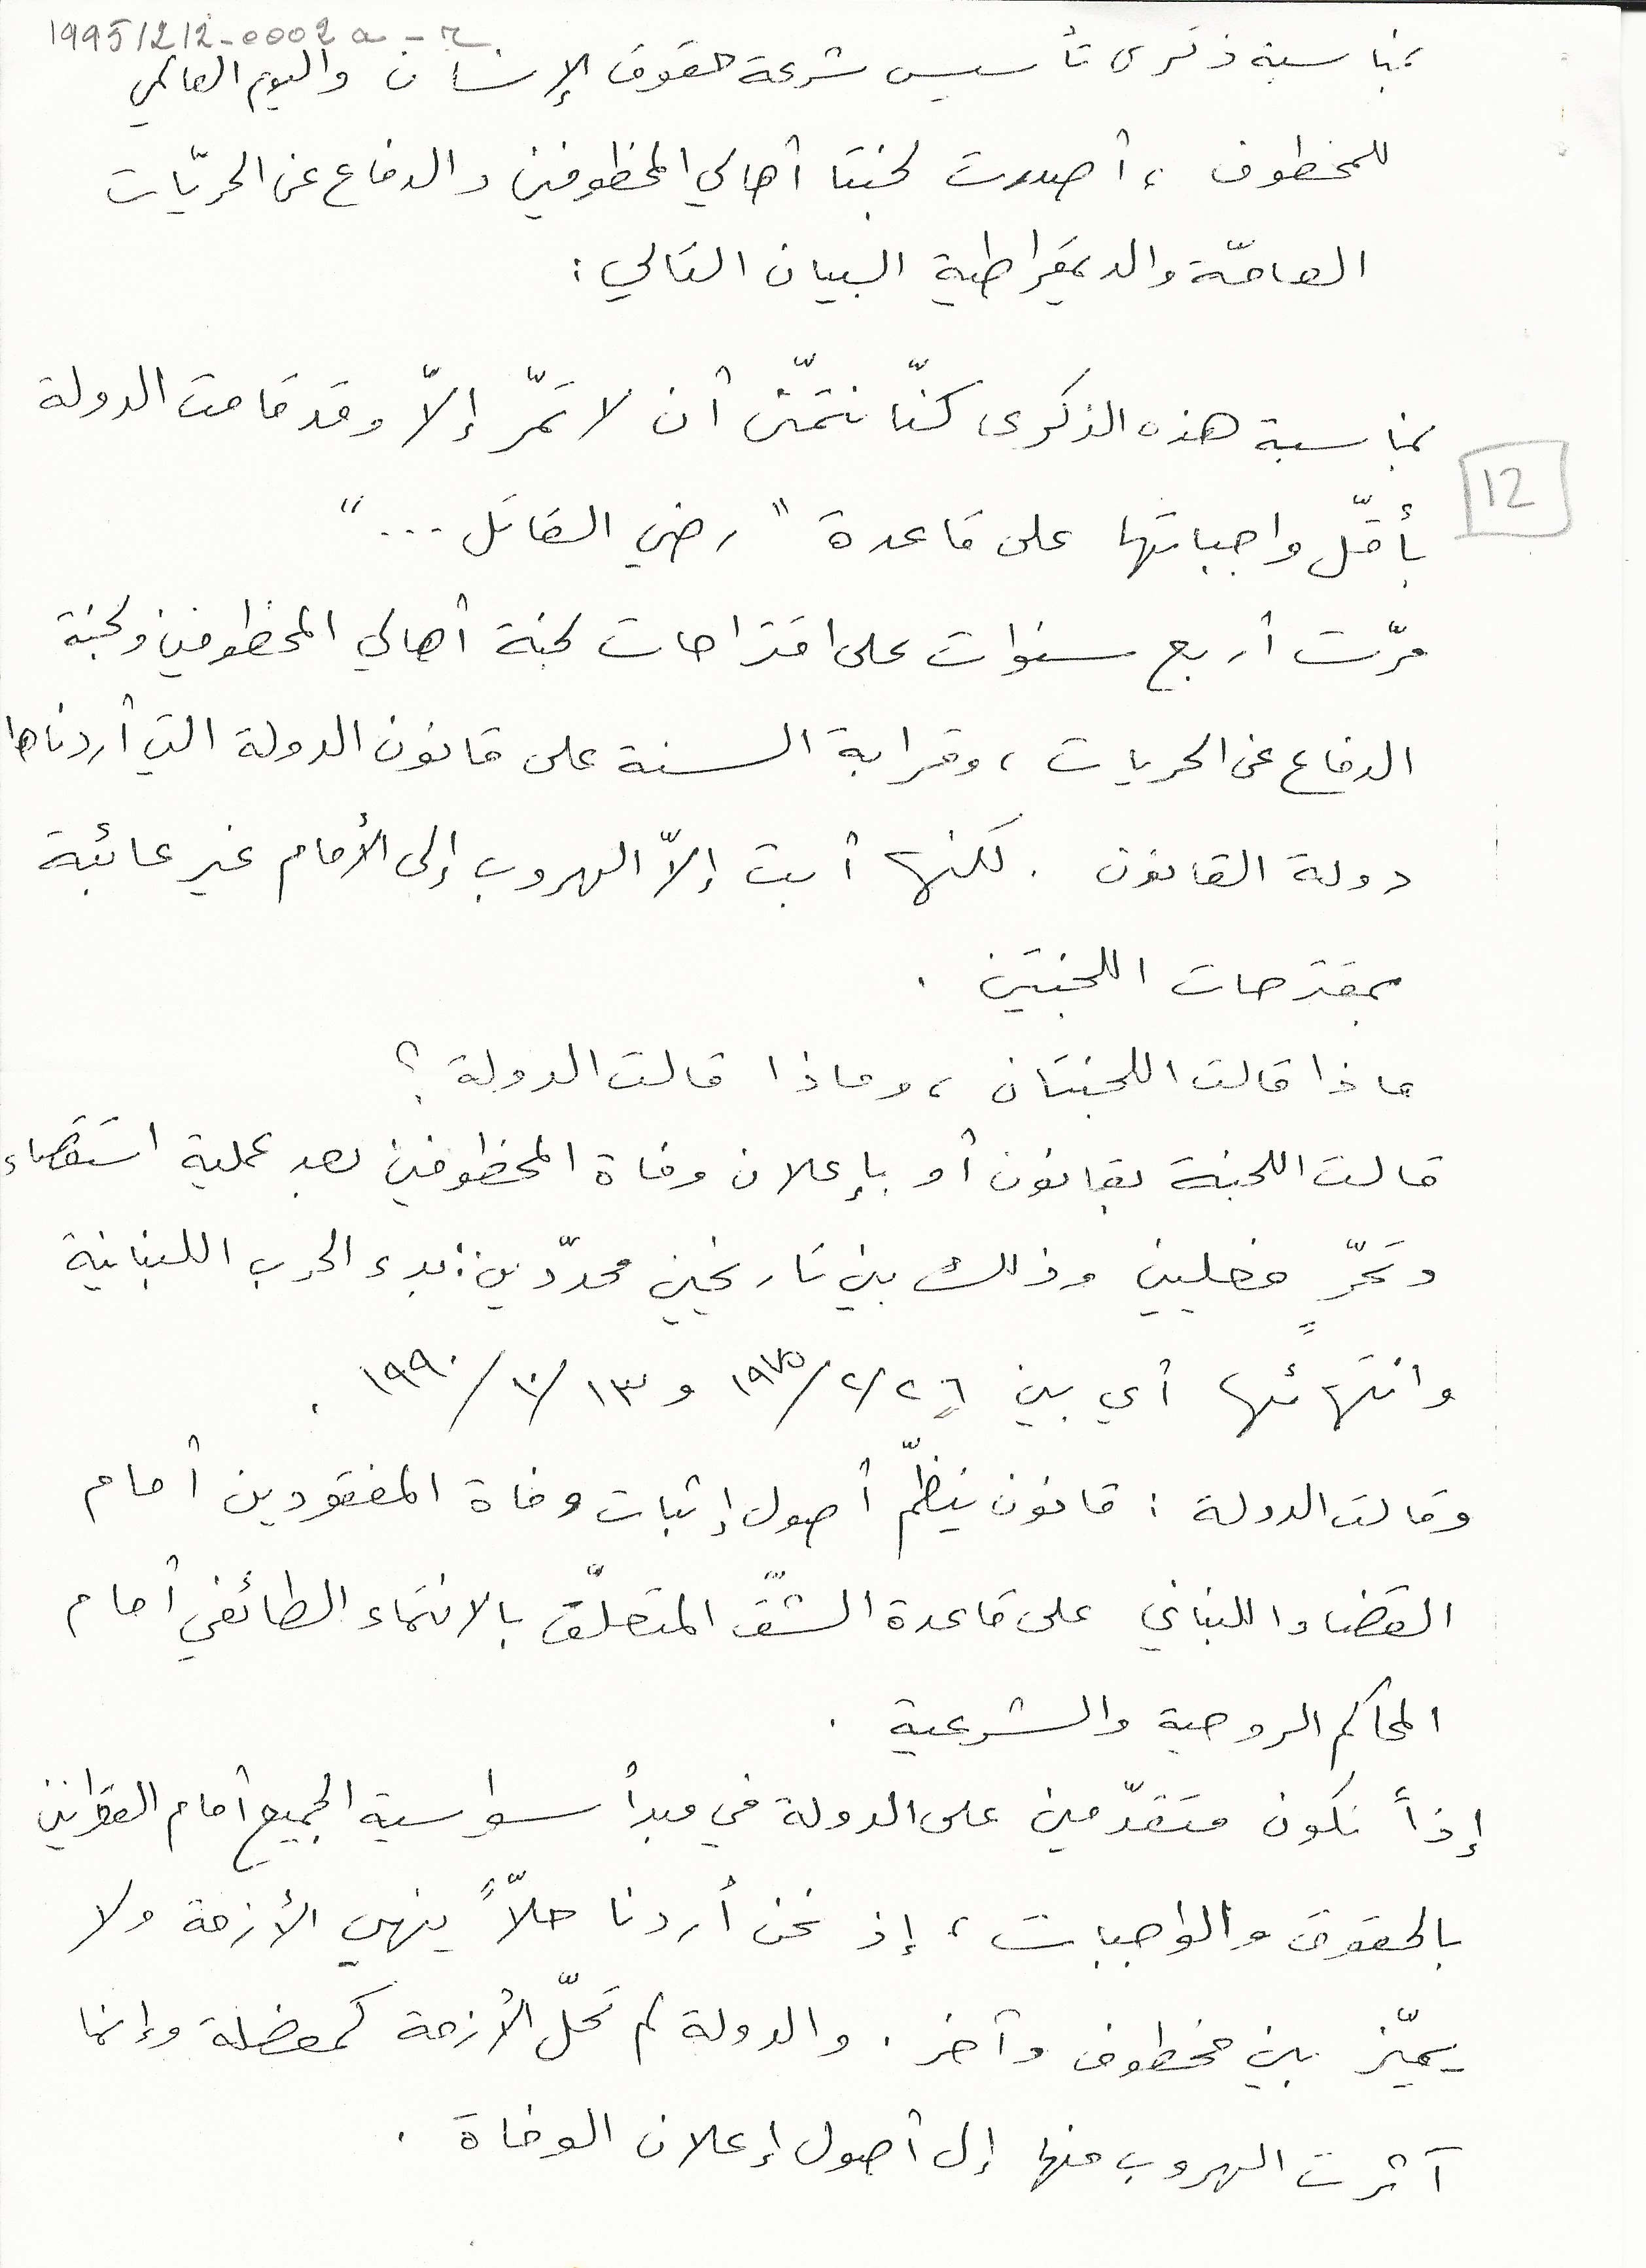 1995/12/12-0002 a-r
بمناسبة ذكرى تأسيس شرعة حقوق الإنسان واليوم العالمي
للمخطوف ، أصدرت لجنتا أهالي المخطوفين والدفاع عن الحريّات
العامّة والديمقراطية البيان التالي :
بمناسبة هذه الذكرى كنّا نتمنّى أن لا تمّر إلاّ وقد قامت الدولة
12
بأقلّ واجباتها على قاعدة " رضي القاتل ... "
مرّت أربع سنوات على اقتراحات لجنة أهالي المخطوفين ولجنة
الدفاع عن الحريات ، وقرابة السنة على قانون الدولة التي أردناها
دولة القانون . لكنها أبت إلاّ الهروب إلى الأمام غير عائبة
بمقترحات اللجنتين .
ماذا قالت اللجنتان ، وماذا قالت الدولة ؟
قالت اللجنة بقانون أو بإعلان وفاة المخطوفين بعد عملية استقصاء
وتحرٍّ فعليين وذلك بين تاريخين محدّدين : بدء الحرب اللبنانية
وانتهائها أي بين ٢٦/٢/١٩٧٥ و ١٣/١٠/١٩٩٠ .
وقالت الدولة : قانون ينظّم أصول إثبات وفاة المفقودين أمام
القضاء اللبناني على قاعدة الشقّ المتعلّق بالانتماء الطائفي أمام
المحاكم الروحية والشرعية .
إذاً نكون متقدّمين على الدولة في مبدأ سواسية الجميع أمام القوانين
بالحقوق والواجبات ، إذ نحن أردنا حلاًّ ينهي الأزمة ولا
يميّز بين مخطوف وآخر . والدولة لم تحلّ الأزمة كمعضلة وإنما
آثرت الهروب منها إلى أصول إعلان الوفاة .